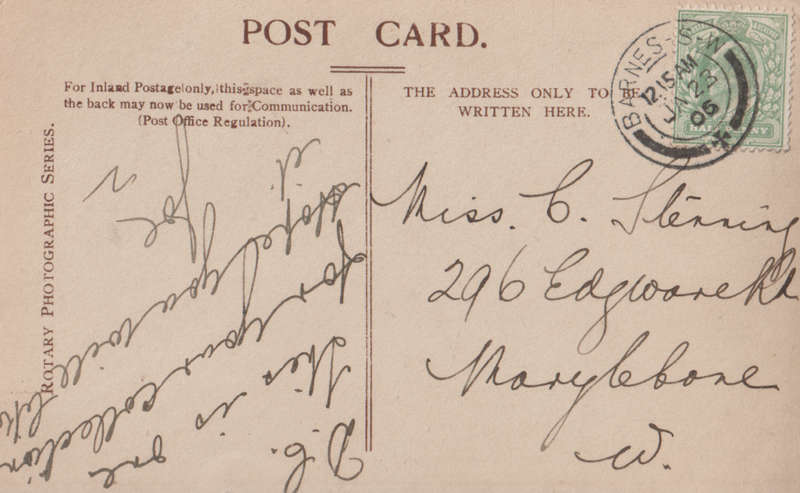 POST CARD.
For Inland Postage only, this space as well as
the back may now be used for Communication.
(Post Office Regulation).
THE ADDRESS ONLY TO BE
WRITTEN HERE.
ROTARY PHOTOGRAPHIC SERIES.
BARNES
12.15 AM
JA 23
06
HALF
D. C.
this is one
for your collection
Hope you will like
it
Joe
Miss. C. Stenning
296 Edgware Rd
Marylebone
W.